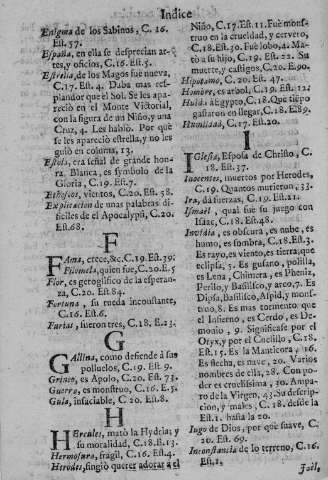 Indice
Enigma de los Sabinos, C. 16.
Est. 57.
España, en ella se desprecian ar-
tes, y oficios, C. 16. Est. 5.
Estrella, de los Magos fue nueva,
C. 17. Est. 4. Daba mas res-
plandor que el Sol. Se les apa-
reciò en el Monte Victorial,
con la figura de un Niño, y una
Cruz, 4. Les hablò. Por què
se les apareciò estrella, y no les
guiò en coluna, 13.
Estola, era señal de grande hon-
ra. Blanca, es symbolo de la
Gloria, C. 19. Est. 7.
Ethesios, vientos, C. 20. Est. 58.
Explicacion de unas palabras di-
ficiles de el Apocalypsi, C. 20.
Est. 68.
F
FAma, crece, &c. C. 19. Est. 39.
Filomela, quien fue, C. 20. E. 5
Flor, es geroglifico de la esperan-
za, C. 20. Est. 84.
Fortuna, su rueda inconstante,
C. 16. Est. 6.
Furias, fueron tres, C. 18. E. 23.
G
GAllina, como defiende à sus
polluelos, C. 19. Est. 9.
Grineo, es Apolo, C. 20. Est. 73.
Guerra, es monstruo, C. 16. E. 5.
Gula, insaciable, C. 20. Est. 8.
H
HErcules, matò la Hydria; y
su moralidad, C. 18. Est. 13.
Hermosura, fragil, C. 16. Est. 4.
Herodes, fingiò querer adorar a el
Niño, C. 17. Est. 11. Fuè mons-
truo en la crueldad, y cervero,
C. 18. Est. 30. Fuè lobo, 4. Ma-
tò a su hijo, C. 19. Est. 22. Su
muerte, y castigos, C. 20. E. 90.
Hipotamo, C. 20. Est. 47.
Hombre, es arbol, C. 19. Est. 12.
Huida a Egypto, C. 18. Que tiempo
gastaron en llegar, C. 18. E. 89.
Humildad, C. 17. Est. 20.
I
IGlesia, Esposa de Christo, C.
18. Est. 37.
Inocentes, muertos por Herodes,
C. 19. Quantos murieron, 33.
Ira, dà fuerzas, C. 19. Est. 21.
Ismael, qual fuè su juego con
Isaac, C. 18. Est. 48.
Invidia, es obscura, es nube, es
humo, es sombra, C. 18. Est. 3.
Es rayo, es viento, es tierra, que
eclipsa, 5. Es gusano, polilla,
es Lena, Chimera, es Pheniz,
Perilo, y Basilisco, y arco, 7. Es
Dipsa, Basilisco, Aspid, y mons-
truo, 8. Es mas tormento que
el Infierno, es Cerdo, es De-
monio, 9. Significase por el
Oryx, y por el Cuclillo, C. 18.
Est. 15. Es la Manticora, 16.
Es flecha, es nave, 20. Varios
nombres de ella, 28. Con po-
der es cruelissima, 30. Ampa-
ro de la Virgen, 43. Su descrip-
cion, y males, C. 18. desde la
Est. 1. hasta la 20.
Iugo de Dios, por què suave, C.
20. Est. 69.
Inconstancia de lo terreno, C. 16.
Est. 1.
Joel,